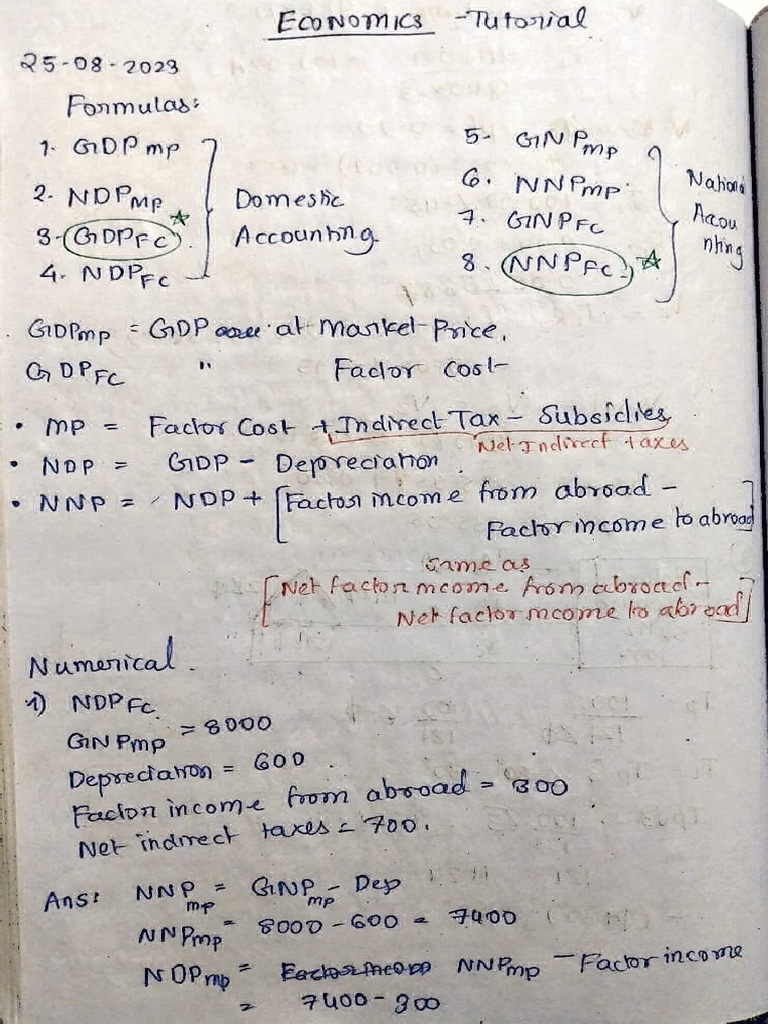 ECONOMICS - Tutorial
25-08-2023
Formulas:
1. GDP mp
2. NDP MP
3. GDP FC
4. NDP FC
Domestic
Accounting
5- GNP MP
6. NNP MP
7. GNP FC
8. NNP FC
National
Accou
nting
GDP mp = GDP at Market Price.
GDP FC " Factor cost
• MP = Factor Cost + Indirect Tax - Subsidies
Net Indirect taxes
• NDP = GDP - Depreciation
• NNP = NDP + [Factor income from abroad -
Factor income to abroad]
same as
[Net factor income from abroad -
Net factor income to abroad]
Numerical.
1) NDP FC
GNP mp = 8000
Depreciation = 600
Factor income from abroad = 300
Net indirect taxes = 700.
Ans: NNP mp = GNP mp - Dep
NNP mp = 8000 - 600 = 7400
NDP mp = NNP mp - Factor income
= 7400 - 300